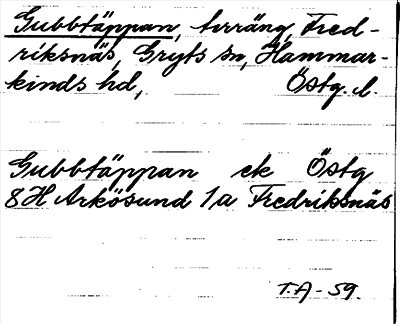 Gubbtäppan, terräng, Fred-
riksnäs, Gryts sn, Hammar-
kinds hd, Östg. l.
Gubbtäppan ek Östg
8H Arkösund 1a Fredriksnäs
T.A - 59.